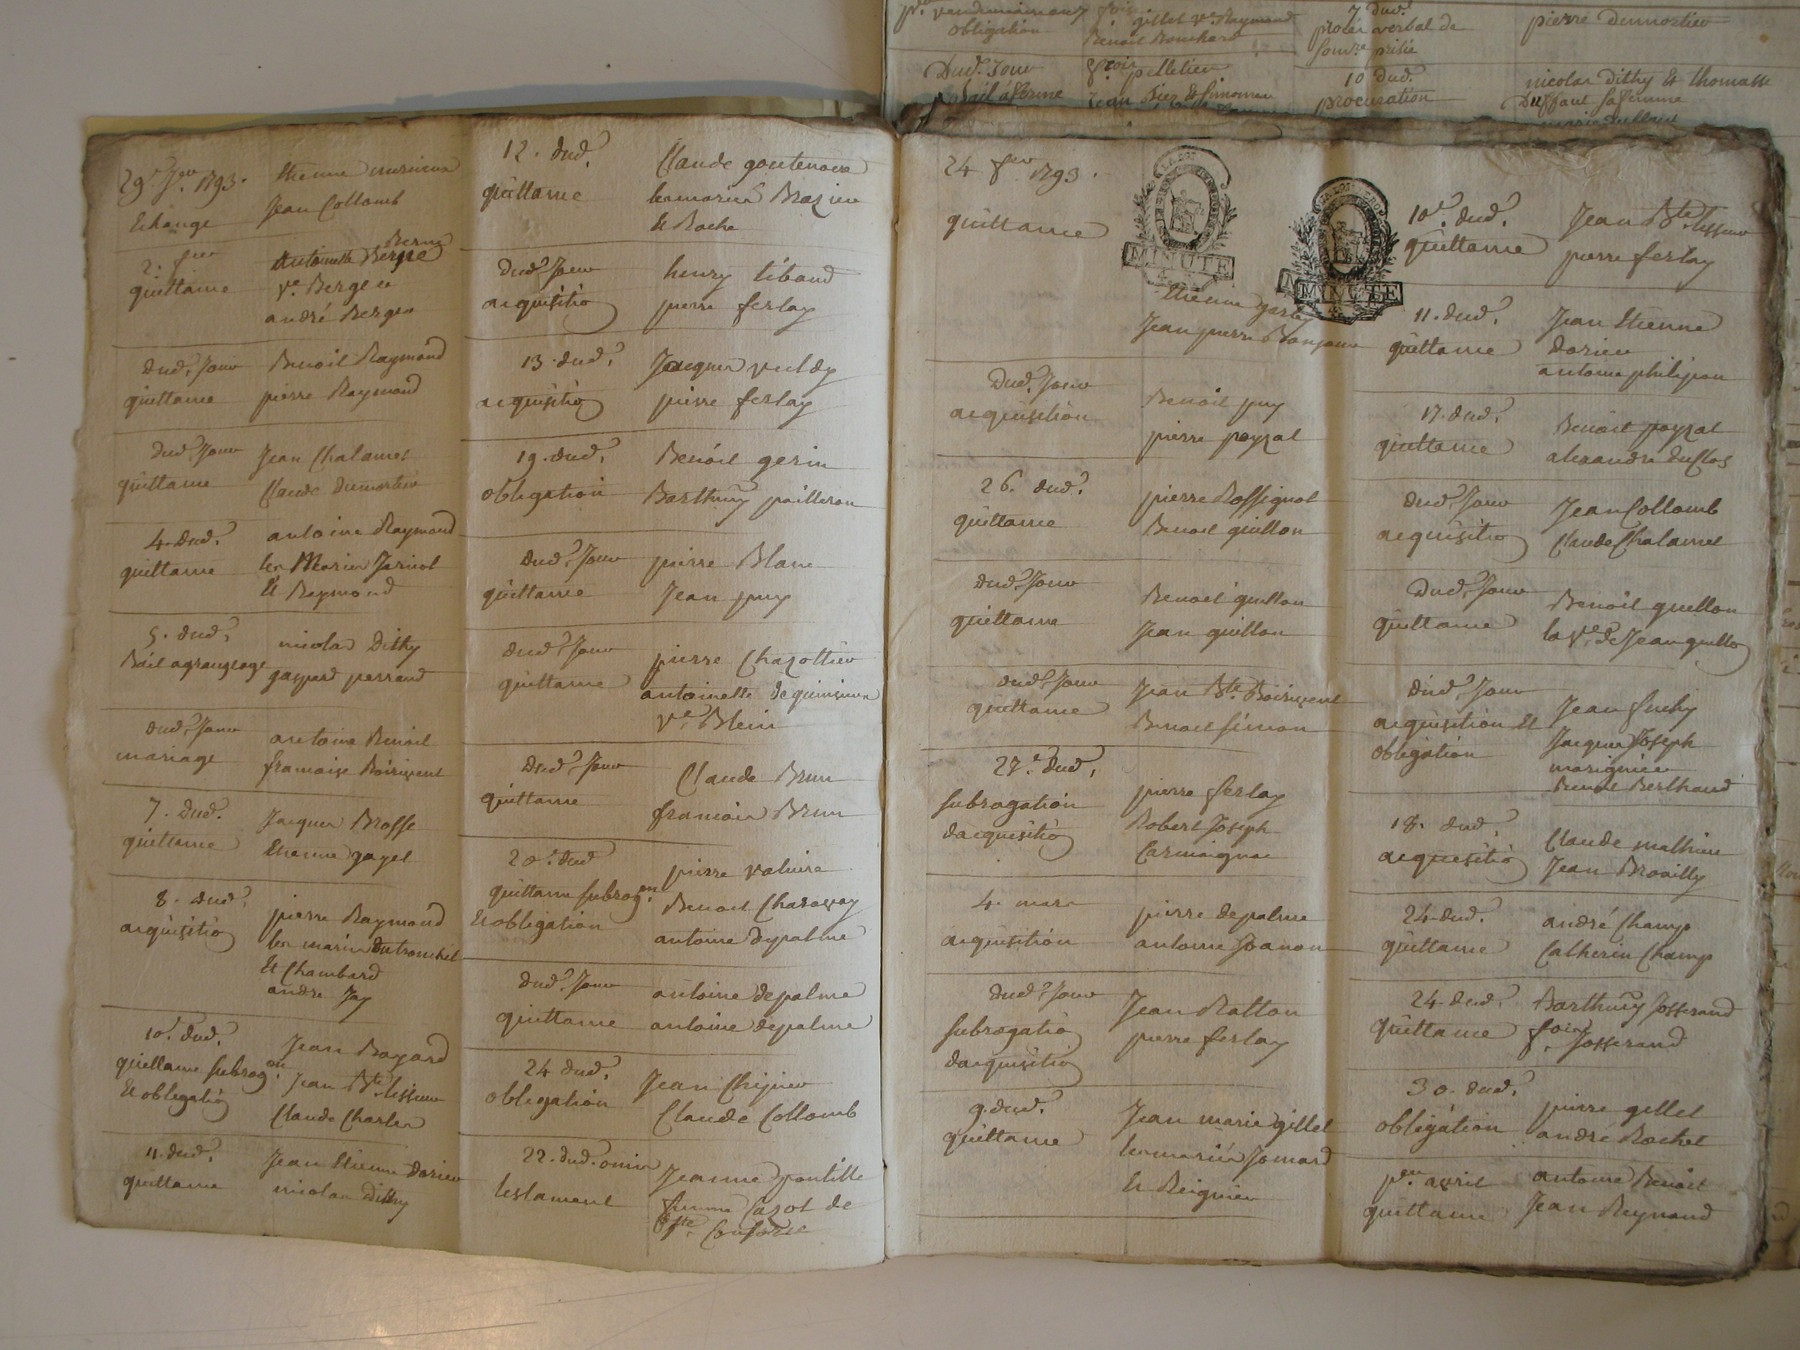 obligation
Benoit Bouchard
7 dud.
procès verbal de
pierre dumortier
Dud. Jour
pelletier
Bail à ferme
10 dud.
procuration
nicolas dithy & thomasse
sa femme
29 Jer. 1793.
Echange
Etienne
Jean Collomb
2. feer
quittance
Antoinette Berger
ve. Berger
andré Berger
dud. Jour
quittance
Benoit Raymond
pierre Raymond
dud. Jour
quittance
Jean Chalamel
Claude dumortier
4. dud.
quittance
antoine Raymond
les Mariés Jaricot
& Raymond
5. dud.
Bail a grangeage
nicolas Dithy
gaspard perraud
dud. Jour
mariage
antoine Benoit
francoise Boirivent
7. dud.
quittance
Jacques Brosse
Etienne gayet
8. dud.
acquisitio
pierre Raymond
les mariés Dutronchet
& Chambard
andre Jay
10e. dud.
quittance subrogon.
& obligatio
Jean Bayard
Jean Bte. tisseur
Claude Charles
11. dud.
quittance
Jean Etienne Dorieu
nicolas Dithy
12. dud.
quittance
Claude goutenoire
les mariés Brazier
& Roche
dud. Jour
acquisitio
henry tibaud
pierre ferlay
13. dud.
acquisitio
Jacques vuldy
pierre ferlay
19. dud.
obligation
Benoit gerin
Barthmy pailleron
dud. Jour
quittance
pierre Blanc
Jean puy
dud. Jour
quittance
pierre Chazottier
antoinette
ve. Blein
dud. Jour
quittance
Claude Brun
francois Brun
20e. dud
quittance subrogon.
& obligation
pierre
Benoit Charavay
antoine depalme
dud. Jour
quittance
antoine depalme
antoine depalme
24 dud.
obligation
Jean
Claude Collomb
22. dud.
testament
Jeanne pontille
femme Cazot de
Ste.
24 fer. 1793.
quittance
MINUTE
MINUTE
Etienne
Jean pierre
Dud. Jour
acquisition
Benoit puy
pierre peyzal
26. dud.
quittance
pierre Rossignol
Benoit guillon
dud. Jour
quittance
Benoit guillon
Jean guillon
dud. Jour
quittance
Jean Bte. Boirivent
Benoit simon
27e. dud.
subrogation
dacquisitio
pierre ferlay
Robert Joseph
Carmaignac
4. mars
acquisition
pierre depalme
antoine Joanon
dud. Jour
subrogatio
dacquisitio
Jean Ratton
pierre ferlay
9. dud.
quittance
Jean marie gillet
les mariés Jomard
& Reignier
10e. dud.
quittance
Jean Bte. tisseur
pierre ferlay
11. dud.
quittance
Jean Etienne
Dorieu
antoine philipon
17. dud.
quittance
Benoit peyzal
alexandre duclos
dud. Jour
acquisitio
Jean Collomb
Claude Chalamel
Dud. Jour
quittance
Benoit guillon
la ve. de Jean guillo
dud. Jour
acquisition &
obligation
Jean
Jacques Joseph
marignier
Benoit Berthaud
18. dud.
acquisitio
Claude mathieu
Jean Brouilly
24 dud.
quittance
andré Champ
Catherin Champ
24. dud.
quittance
Barthmy Josserand
fois. Josserand
30. dud.
obligation
pierre gillet
andré Rochet
per. avril
quittance
antoine Benoit
Jean Reynaud